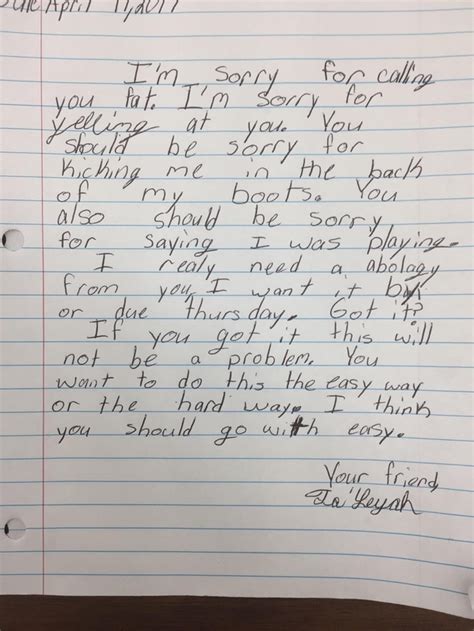 Date April 11, 2017
I'm sorry for calling
you fat. I'm sorry for
yelling at you. You
should be sorry for
kicking me in the back
of my boots. You
also should be sorry
for saying I was playing.
I realy need a abology
from you I want it by
or due thursday. Got it?
If you got it this will
not be a problem. You
want to do this the easy way
or the hard way. I think
you should go with easy.
Your friend,
Ja'Leyah